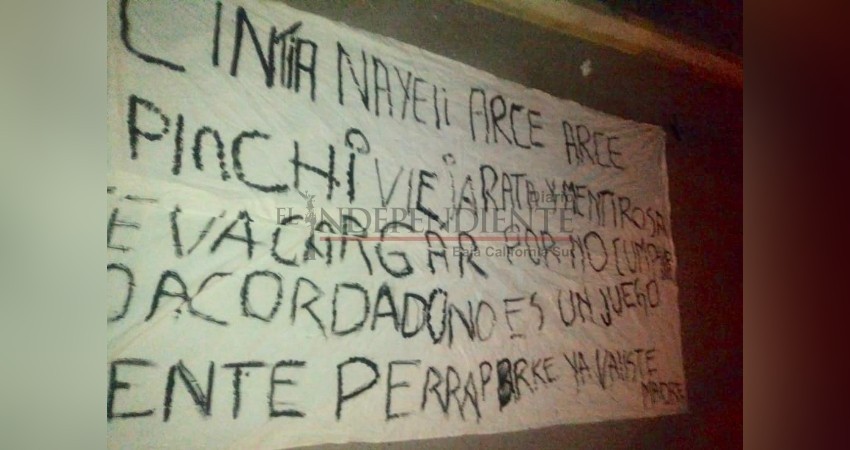 CINTIA NAYEli ARCE ARCE
PINCHI VIEJA RATA Y MENTIROSA
E VA CARGAR POR NO CUMPLIR
O ACORDADO NO ES UN JUEGO
ENTE PERRA PORKE YA VALISTE
MADRE
Diario
EL INDEPENDIENTE
Baja California Sur